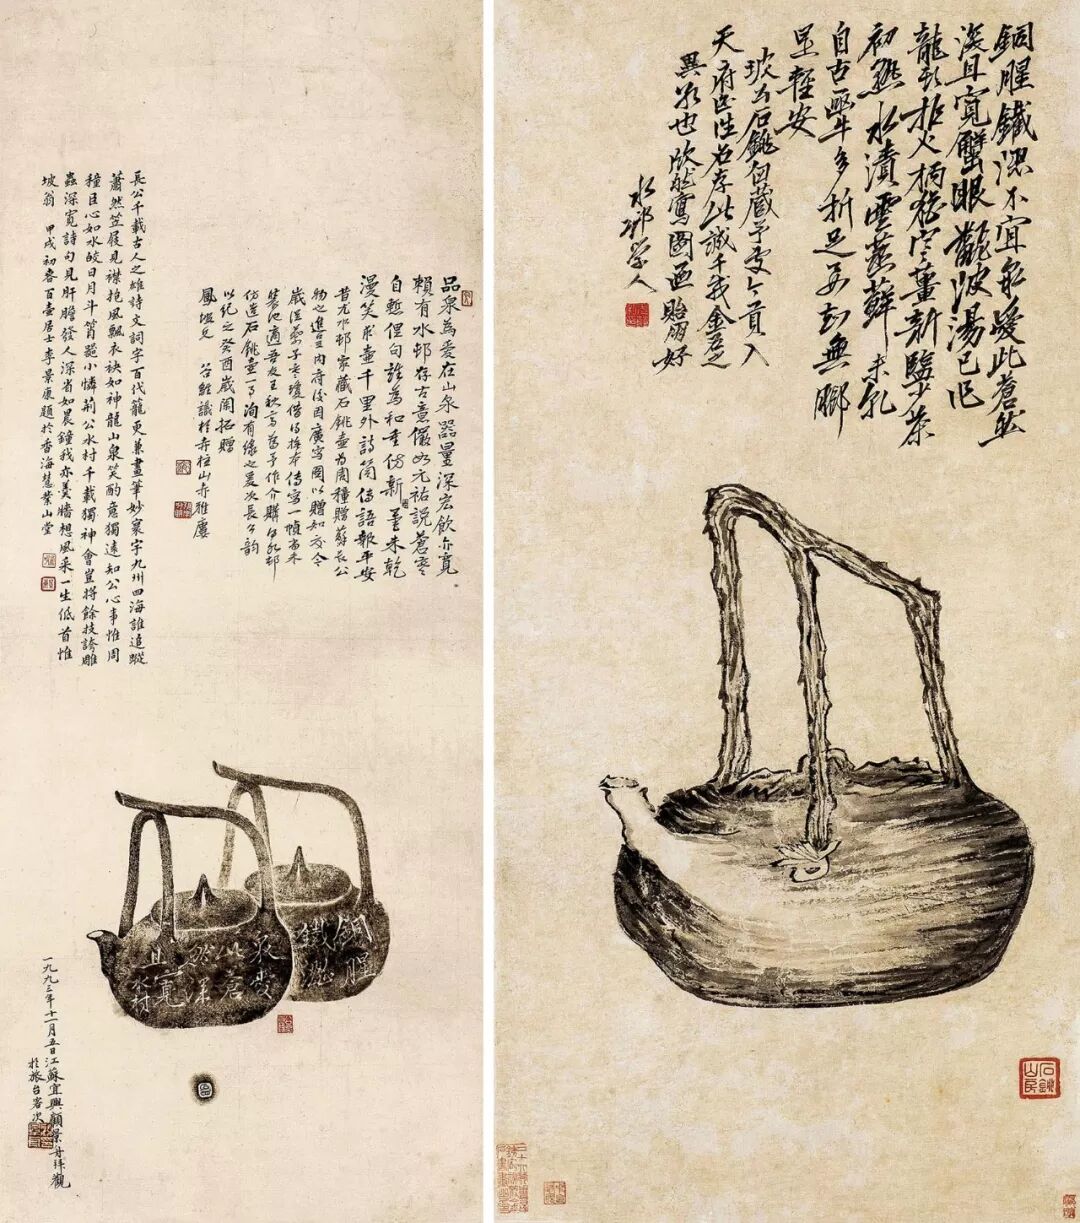 品泉為愛在山泉器量深宏飲亦寬
賴有水邨存古意儼如元祐說蒼寒
自慙俚句誰為和幸仿新圖墨未乾
漫笑求壺千里外詩筒傳語報平安
昔尤水邨家藏石銚壺為周穜贈蘇長公
物也進呈內府後因廣寫圖以贈知交今
歲從蔡子 瓊借得 本傳寫一幀尚未
裝池適吾友王秋 為予作介購得 邨
仿造石銚壺一 洵有緣也爰次長公韻
以紀之癸酉歲闌拓贈
鳳 兄 谷雛識於赤柱山赤雅廬
長公千載古人之雄詩文詞字百代龍更兼畫筆妙寰宇九州四海誰追蹤
蕭然笠屐見襟抱風飄衣袂如神龍山泉笑酌意獨遠知公心事惟周
穜臣心如水皎日月斗筲器小憐荊公水村千載獨神會豈將餘技誇雕
蟲深寬詩句見肝膽發人深省如晨鐘我亦羹牆想風采一生低首惟
坡翁 甲戌初春百壺居士李景康題於香海慧業山堂
銅腥
鐵澀
泉愛
此蒼
然深
且寬
水村
一九九三年十一月五日江蘇宜興顧景舟拜觀
於旅台客次
銅腥鐵澀不宜泉愛此蒼然
深且寬蟹眼翻波湯已作
龍頭拒火柄猶寒薑新鹽少茶
初熟水漬雲蒸蘚未乾
自古函牛多折足要知無腳
是輕安
坡公石銚向藏予處今貢入
天府臣姓名存此誠千載金石之
異 也欣然寫圖 貽朋好
水邨學人
石銚
山民